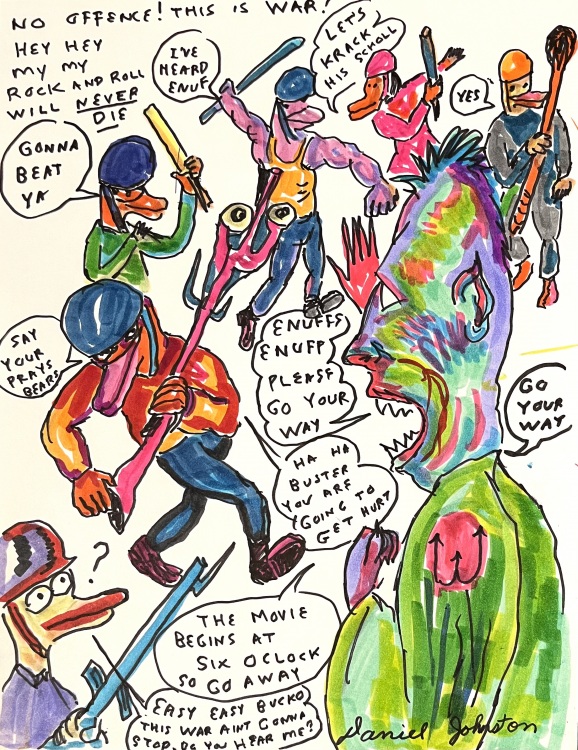 NO OFFENCE! THIS IS WAR!
HEY HEY
MY MY
ROCK AND ROLL
WILL NEVER
DIE
I'VE
HEARD
ENUF
LET'S
KRACK
HIS SCHOLL
YES
GONNA
BEAT
YA
SAY
YOUR
PRAYS
BEARS
ENUFFS
ENUFF
PLEASE
GO YOUR
WAY
GO
YOUR
WAY
HA HA
BUSTER
YOU ARE
GOING TO
GET HURT
?
THE MOVIE
BEGINS AT
SIX OCLOCK
SO GO AWAY
EASY EASY BUCKO
THIS WAR AINT GONNA
STOP. DO YOU HEAR ME?
Daniel Johnston